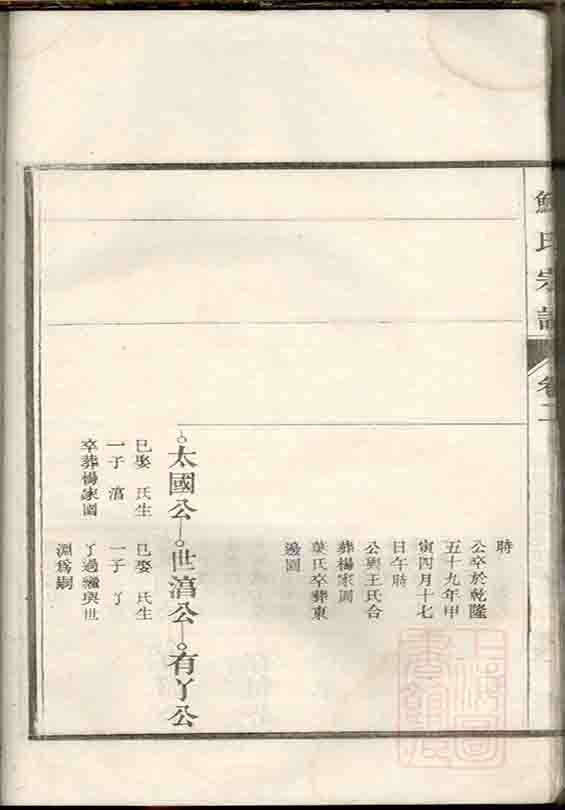 氏宗譜 卷二
時
公卒於乾隆
五十九年甲
寅四月十七
日午時
公與王氏合
葬楊家園
葉氏卒葬東
邊園
太國公 世滈公 有丫公
巳娶 氏生
一子 滈
卒葬楊家園
巳娶 氏生
一子 丫
丫過繼與世
淵爲嗣
上海圖書館藏